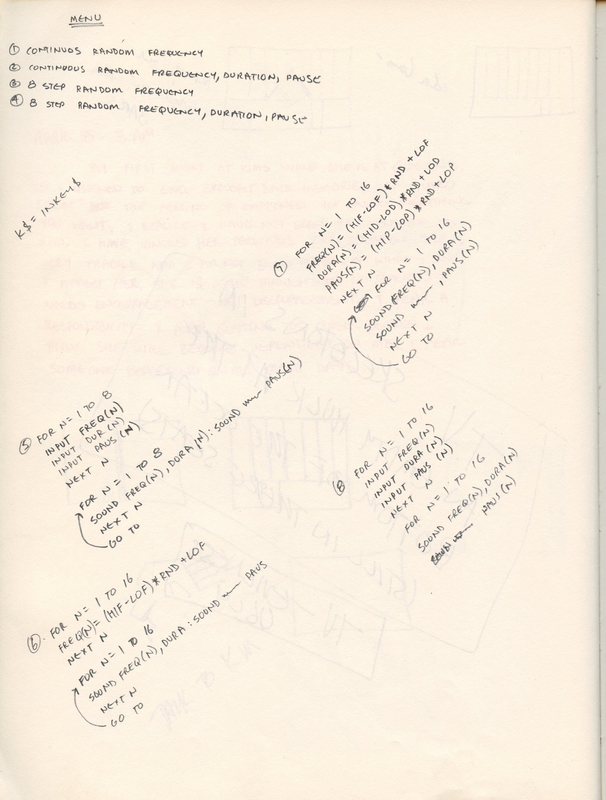 MENU
① CONTINUOS RANDOM FREQUENCY
② CONTINUOUS RANDOM FREQUENCY, DURATION, PAUSE
③ 8 STEP RANDOM FREQUENCY
④ 8 STEP RANDOM FREQUENCY, DURATION, PAUSE
K$ = INKEY$
⑦ FOR N= 1 TO 16
FREQ(N)= (HIF-LOF)*RND+LOF
DURA(N)= (HID-LOD)*RND+LOD
PAUS(N)= (HIP-LOP)*RND+LOP
NEXT N
FOR N= 1 TO 16
SOUND FREQ(N), DURA(N)
SOUND , PAUS(N)
NEXT N
GO TO
⑤ FOR N= 1 TO 8
INPUT FREQ(N)
INPUT DUR(N)
INPUT PAUS(N)
NEXT N
FOR N= 1 TO 8
SOUND FREQ(N), DURA(N): SOUND PAUS(N)
NEXT N
GO TO
⑧ FOR N= 1 TO 16
INPUT FREQ(N)
INPUT DURA(N)
INPUT PAUS(N)
NEXT N
FOR N= 1 TO 16
SOUND FREQ(N), DURA(N)
PAUS(N)
⑥ FOR N= 1 TO 16
FREQ(N)= (HIF-LOF)*RND+LOF
NEXT N
FOR N= 1 TO 16
SOUND FREQ(N), DURA: SOUND PAUS
NEXT N
GO TO